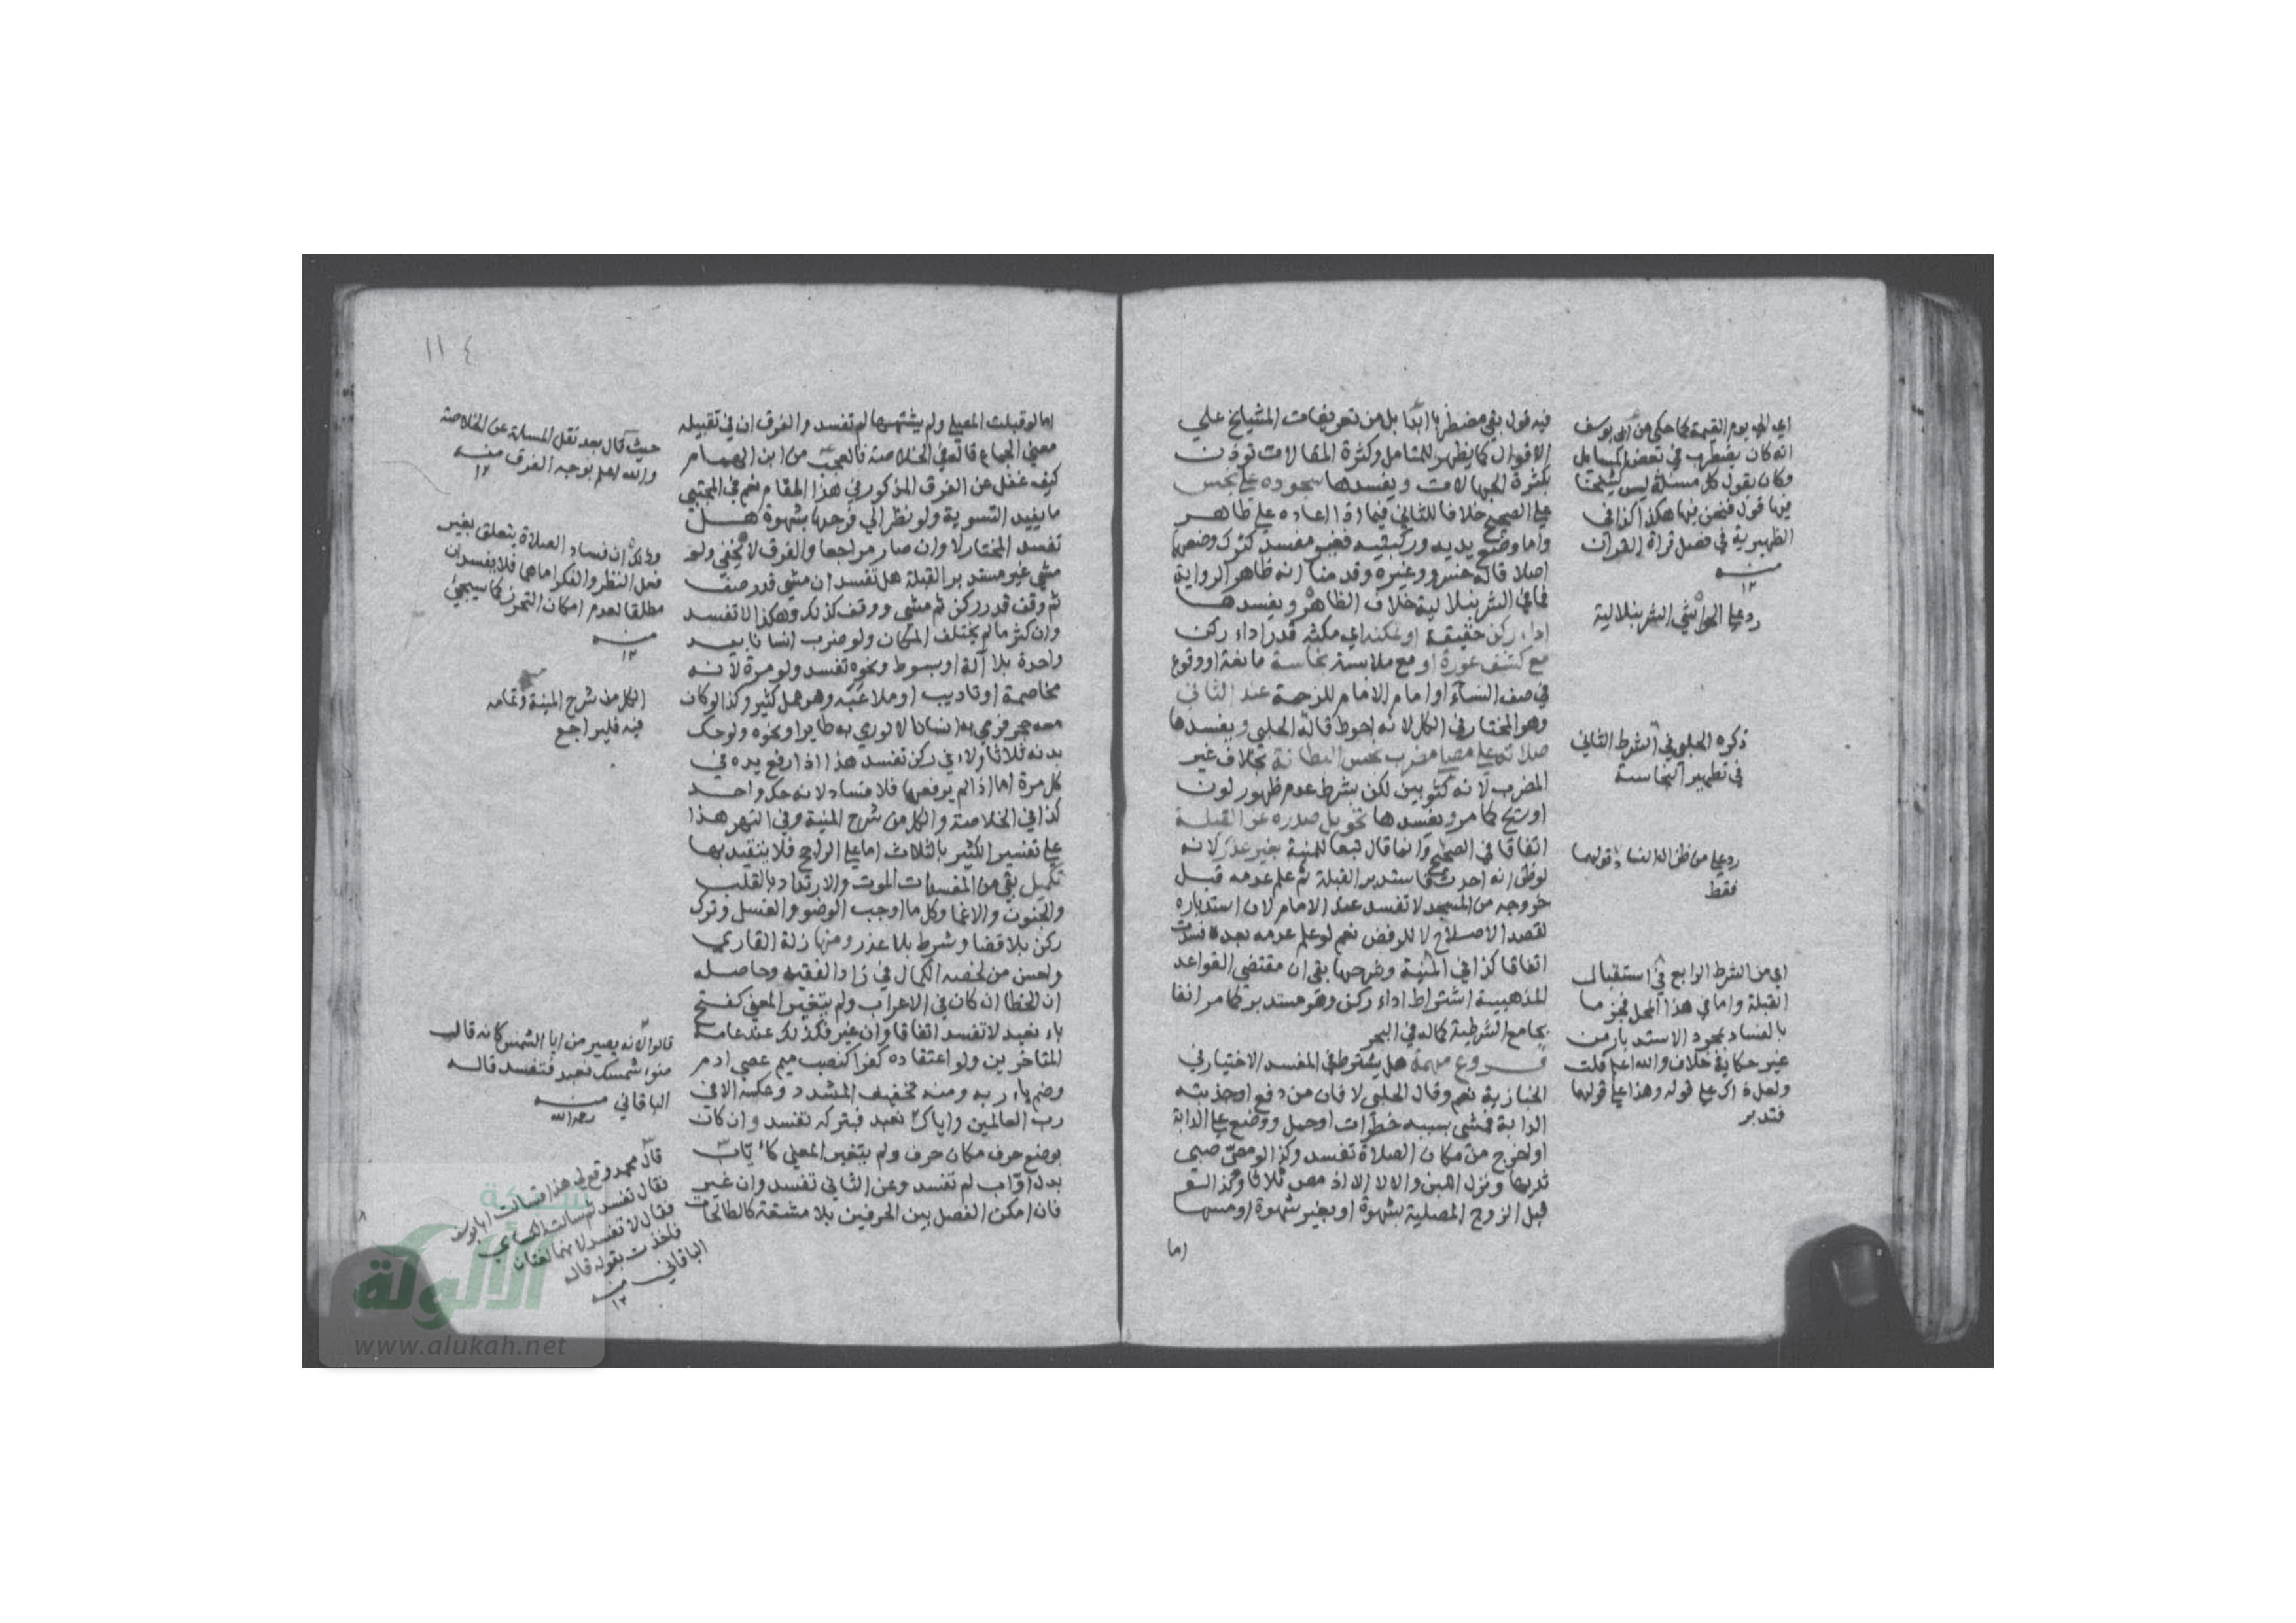 فيه قول بقي مضطربا ابدا بل من تعريفات المشايخ علي
الاقوال كما يظهر للمتامل وكثرة المقالات توذن
بكثرة الجهالات ويفسدها سجوده علي نجس
علي الصحيح خلافا للثاني فيما اذا اعاده علي طاهر
واما وضع يديه وركبتيه فغير مفسد كترك وضعهما
اصلا قاله خسرو وغيره وقدمنا انه ظاهر الرواية
فما في الشرنبلالية خلاف الظاهر ويفسدها
اداء ركن حقيقة او تمكنه اي مكثه قدر اداء ركن
مع كشف عورة او مع ملابسة نجاسة مانعة او وقوع
في صف النساء او امام الامام للزحمة عند الثاني
وهو المختار في الكل لانه احوط قاله الحلبي ويفسدها
صلاته علي مصلي مضرب نجس البطانة بخلاف غير
المضرب لانه كثوبين لكن بشرط عدم ظهور لون
او ريح كما مر ويفسدها تحويل صدره عن القبلة
اتفاقا في الصحيح وانما قال تبعا للمنية بغير عذر لانه
لو ظن انه احدث فاستدبر القبلة ثم علم عدمه قبل
خروجه من المسجد لا تفسد عند الامام لان استدباره
لقصد الاصلاح لا للرفض نعم لو علم عدمه بعده فسدت
اتفاقا كذا في المنية وشرحها بقي ان مقتضي القواعد
المذهبية اشتراط اداء ركن وهو مستدبر كما مر انفا
بجامع الشرطية كماله في البحر
فروع مهمة هل يشترط في المفسد الاختيار في
الخبازية نعم وقال الحلبي لا فان من دفع او جذبته
الدابة فمشي بسببه خطوات او حمل ووضع علي الدابة
او اخرج من مكان الصلاة تفسد وكذا لو مص صبي
ثديها ونزل اللبن والا لا الا اذ مص ثلاثا وكذا لو
قبل الزوج المصلية بشهوة او بغير شهوة او مسها
اما
اي الي يوم القيمة كما حكي عن ابي يوسف
انه كان يضطرب في بعض المسايل
وكان يقول كل مسئلة ليس لشيخنا
فيها قول فنحن فيها هكذا كذا في
الظهيرية في فصل قراة القران
منه
١٢
رد علي الحواشي الشرنبلالية
ذكره الحلبي في الشرط الثاني
في تطهير النجاسة
رد علي من ظن الفساد قولهما
فقط
اي من الشرط الرابع في استقبال
القبلة واما في هذا المحل فجزما
بالفساد بمجرد الاستدبار من
غير حكاية خلاف والله اعلم قلت
ولعل ذاك علي قوله وهذا علي قولهما
فتدبر
١١٤
اما لو قبلت المصلي ولم يشتهيها لم تفسد والفرق ان في تقبيله
معني الجماع قاله في الخلاصة فالعجب من ابن الهمام
كيف غفل عن الفرق المذكور في هذا المقام نعم في المجتبي
ما يفيد التسوية ولو نظر الي فرجها بشهوة هل
تفسد المختار لا وان صار مراجعا والفرق لا يخفي ولو
مشي غير مستدبر القبلة هل تفسد ان مشي قدر صف
ثم وقف قدر ركن ثم مشي ووقف كذلك وهكذا لا تفسد
وان كثر ما لم يختلف المكان ولو ضرب انسانا بيد
واحدة بلا آلة او بسوط ونحوه تفسد ولو مرة لانه
مخاصمة او تاديب او ملاعبة وهو عمل كثير وكذا لو كان
معه حجر فرمي به انسانا لا لو رمي به طايرا ونحوه ولو حك
بدنه ثلاثا ولاء في ركن تفسد هذا اذا رفع يده في
كل مرة اما اذا لم يرفعها فلا فساد لانه حك واحد
كذا في الخلاصة والكل من شرح المنية وفي النهر هذا
علي تفسير الكثير بالثلاث اما علي الراجح فلا يتقيد بها
تكميل بقي من المفسدات الموت والارتداد بالقلب
والجنون والاغما وكل ما اوجب الوضو والغسل وترك
ركن بلا قضا وشرط بلا عذر ومنها زلة القاري
واحسن من لخصه الكمال في زاد الفقيه وحاصله
ان الخطا ان كان في الاعراب ولم يتغير المعني كفتح
باء نعبد لا تفسد اتفاقا وان غير فكذلك عند عامة
المتاخرين ولو اعتقاده كفرا كنصب ميم عصي ادم
وضم باء ربه ومنه تخفيف المشدد وعكسه الا في
رب العالمين واياك نعبد فبتركه تفسد وان كان
بوضع حرف مكان حرف ولم يتغير المعني كايّاب
بدل اوّاب لم تفسد وعن الثاني تفسد وان غير
فان امكن الفصل بين الحرفين بلا مشقة كالطالحات
حيث قال بعد نقل المسالة عن الخلاصة
والله اعلم بوجه الفرق منه
١٢
وذلك ان فساد الصلاة يتعلق بغير
فعل النظر والفكر اما هما فلا يفسدان
مطلقا لعدم امكان التحرز كما سيجئ
منه
١٢
الكل من شرح المنية وتمامه
فيه فليراجع
قالوا لانه يصير من ايا الشمس كانه قال
ضوء شمسك نعبد فتفسد قاله
الباقاني منه
رحمه الله
قال محمد وقع لي هذا فسالت ابا يوسف
فقال تفسد ثم سالت الكسائي
فقال لا تفسد لانهما لغتان
فاخذت بقوله قاله
الباقاني منه
١٢
شبكة
الألولة
www.alukah.net